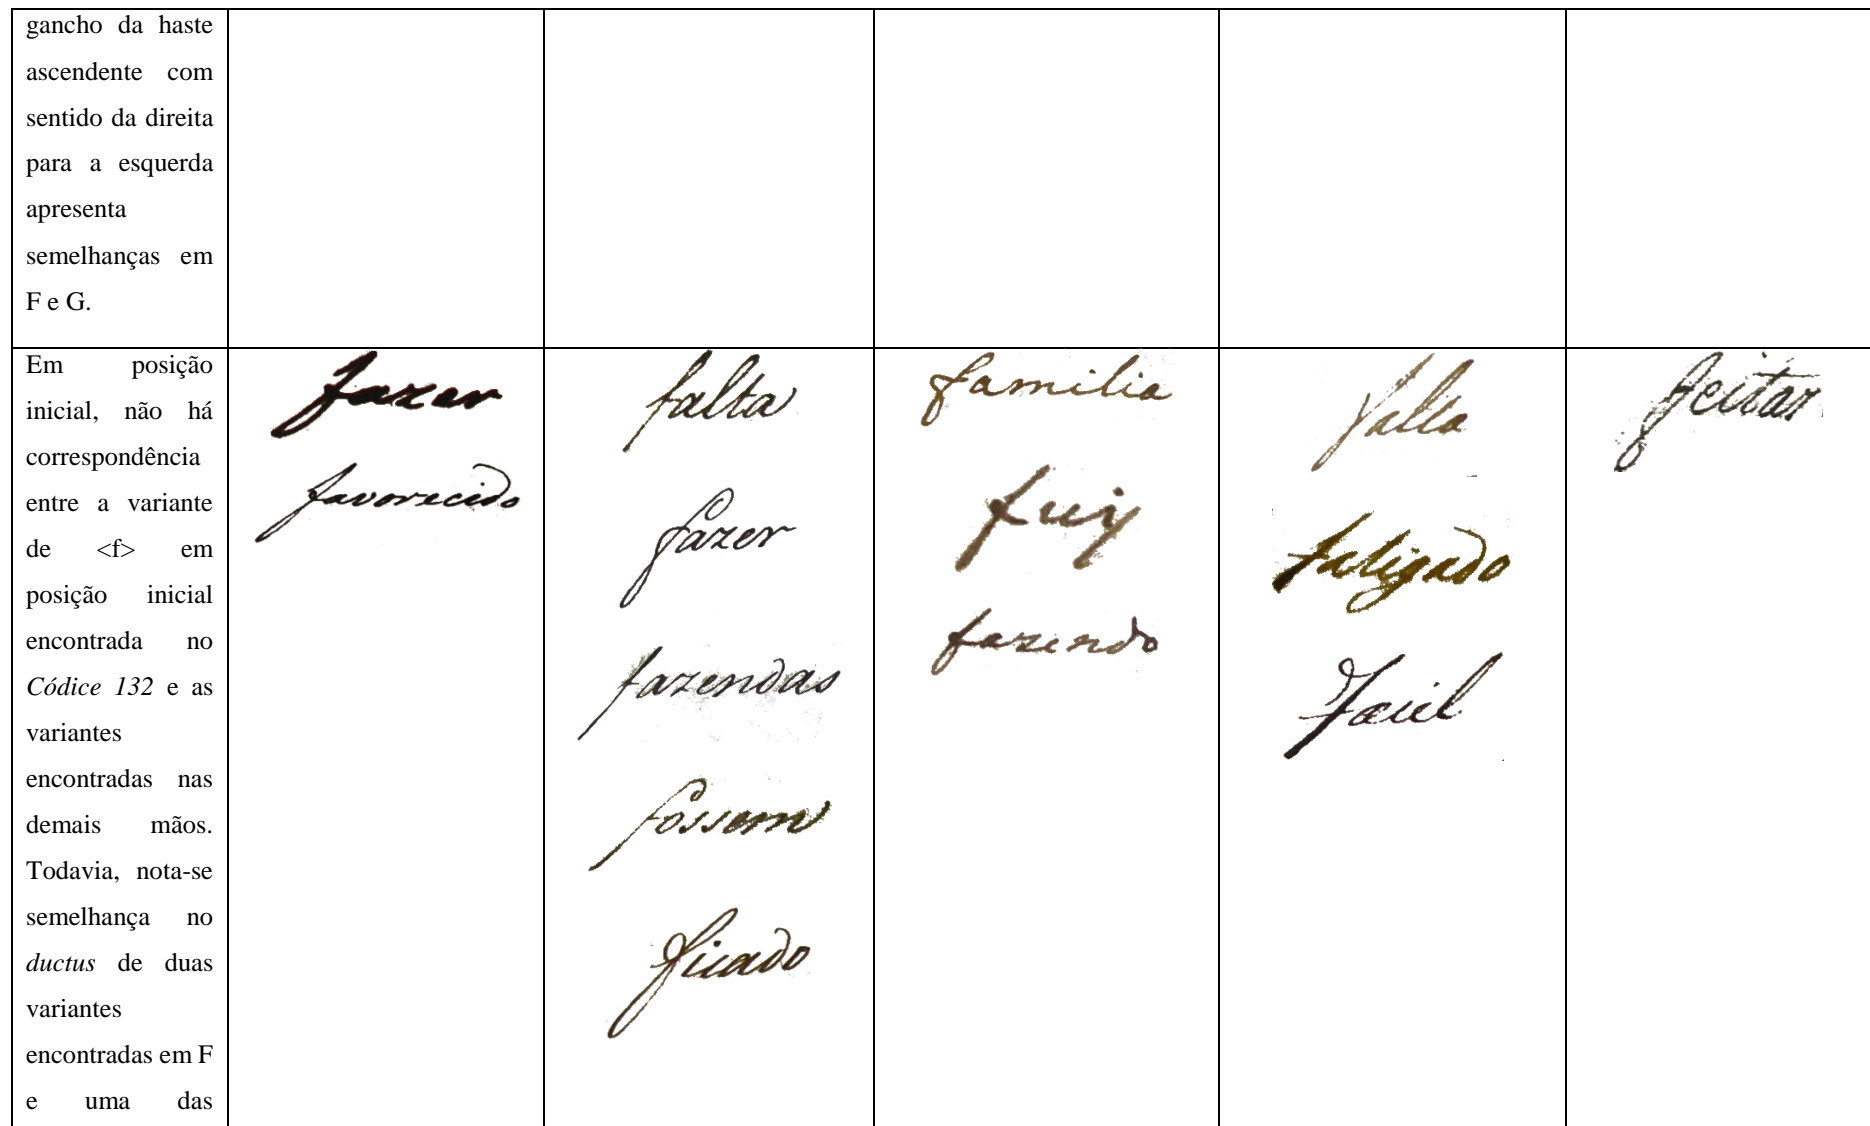 gancho da haste
ascendente com
sentido da direita
para a esquerda
apresenta
semelhanças em
F e G.
Em posição
inicial, não há
correspondência
entre a variante
de <f> em
posição inicial
encontrada no
Códice 132 e as
variantes
encontradas nas
demais mãos.
Todavia, nota-se
semelhança no
ductus de duas
variantes
encontradas em F
e uma das
fazer
favorecido
falta
fazer
fazendas
fossem
ficado
familia
fuy
fazendo
falta
fatigado
Facil
feitar